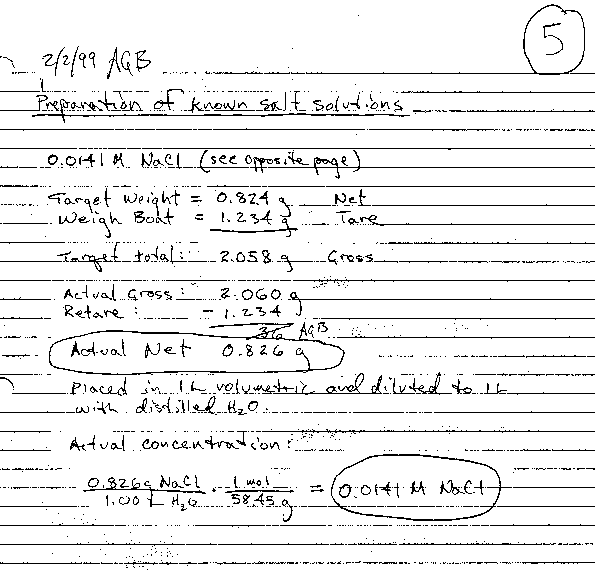 5
2/2/99 AGB
Preparation of known salt solutions
0.0141 M NaCl (see opposite page)
Target Weight = 0.824 g Net
Weigh Boat = 1.234 g Tare
Target total: 2.058 g Gross
Actual Gross: 2.060 g
Retare: - 1.234 g
36 AGB
Actual Net 0.826 g
Placed in 1 L volumetric and diluted to 1 L
with distilled H₂O.
Actual concentration:
0.826g NaCl / 1.00 L H₂O · 1 mol / 58.45 g = 0.0141 M NaCl